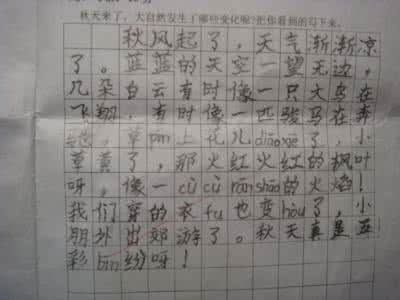 秋天来了，大自然发生了哪些变化呢?把你看到的写下来。
秋风起了，天气渐渐凉
了。蓝蓝的天空一望无边，
几朵白云有时像一只大鸟在
飞翔，有时像一匹骏马在奔
草pín上花儿diāoxè了，小
草黄了，那火红火红的枫叶
呀，像一cù cù rānshāo的火焰！
我们穿的衣fu也变hòu了，小
朋外出郊游了。秋天真是五
彩bīn纷呀！